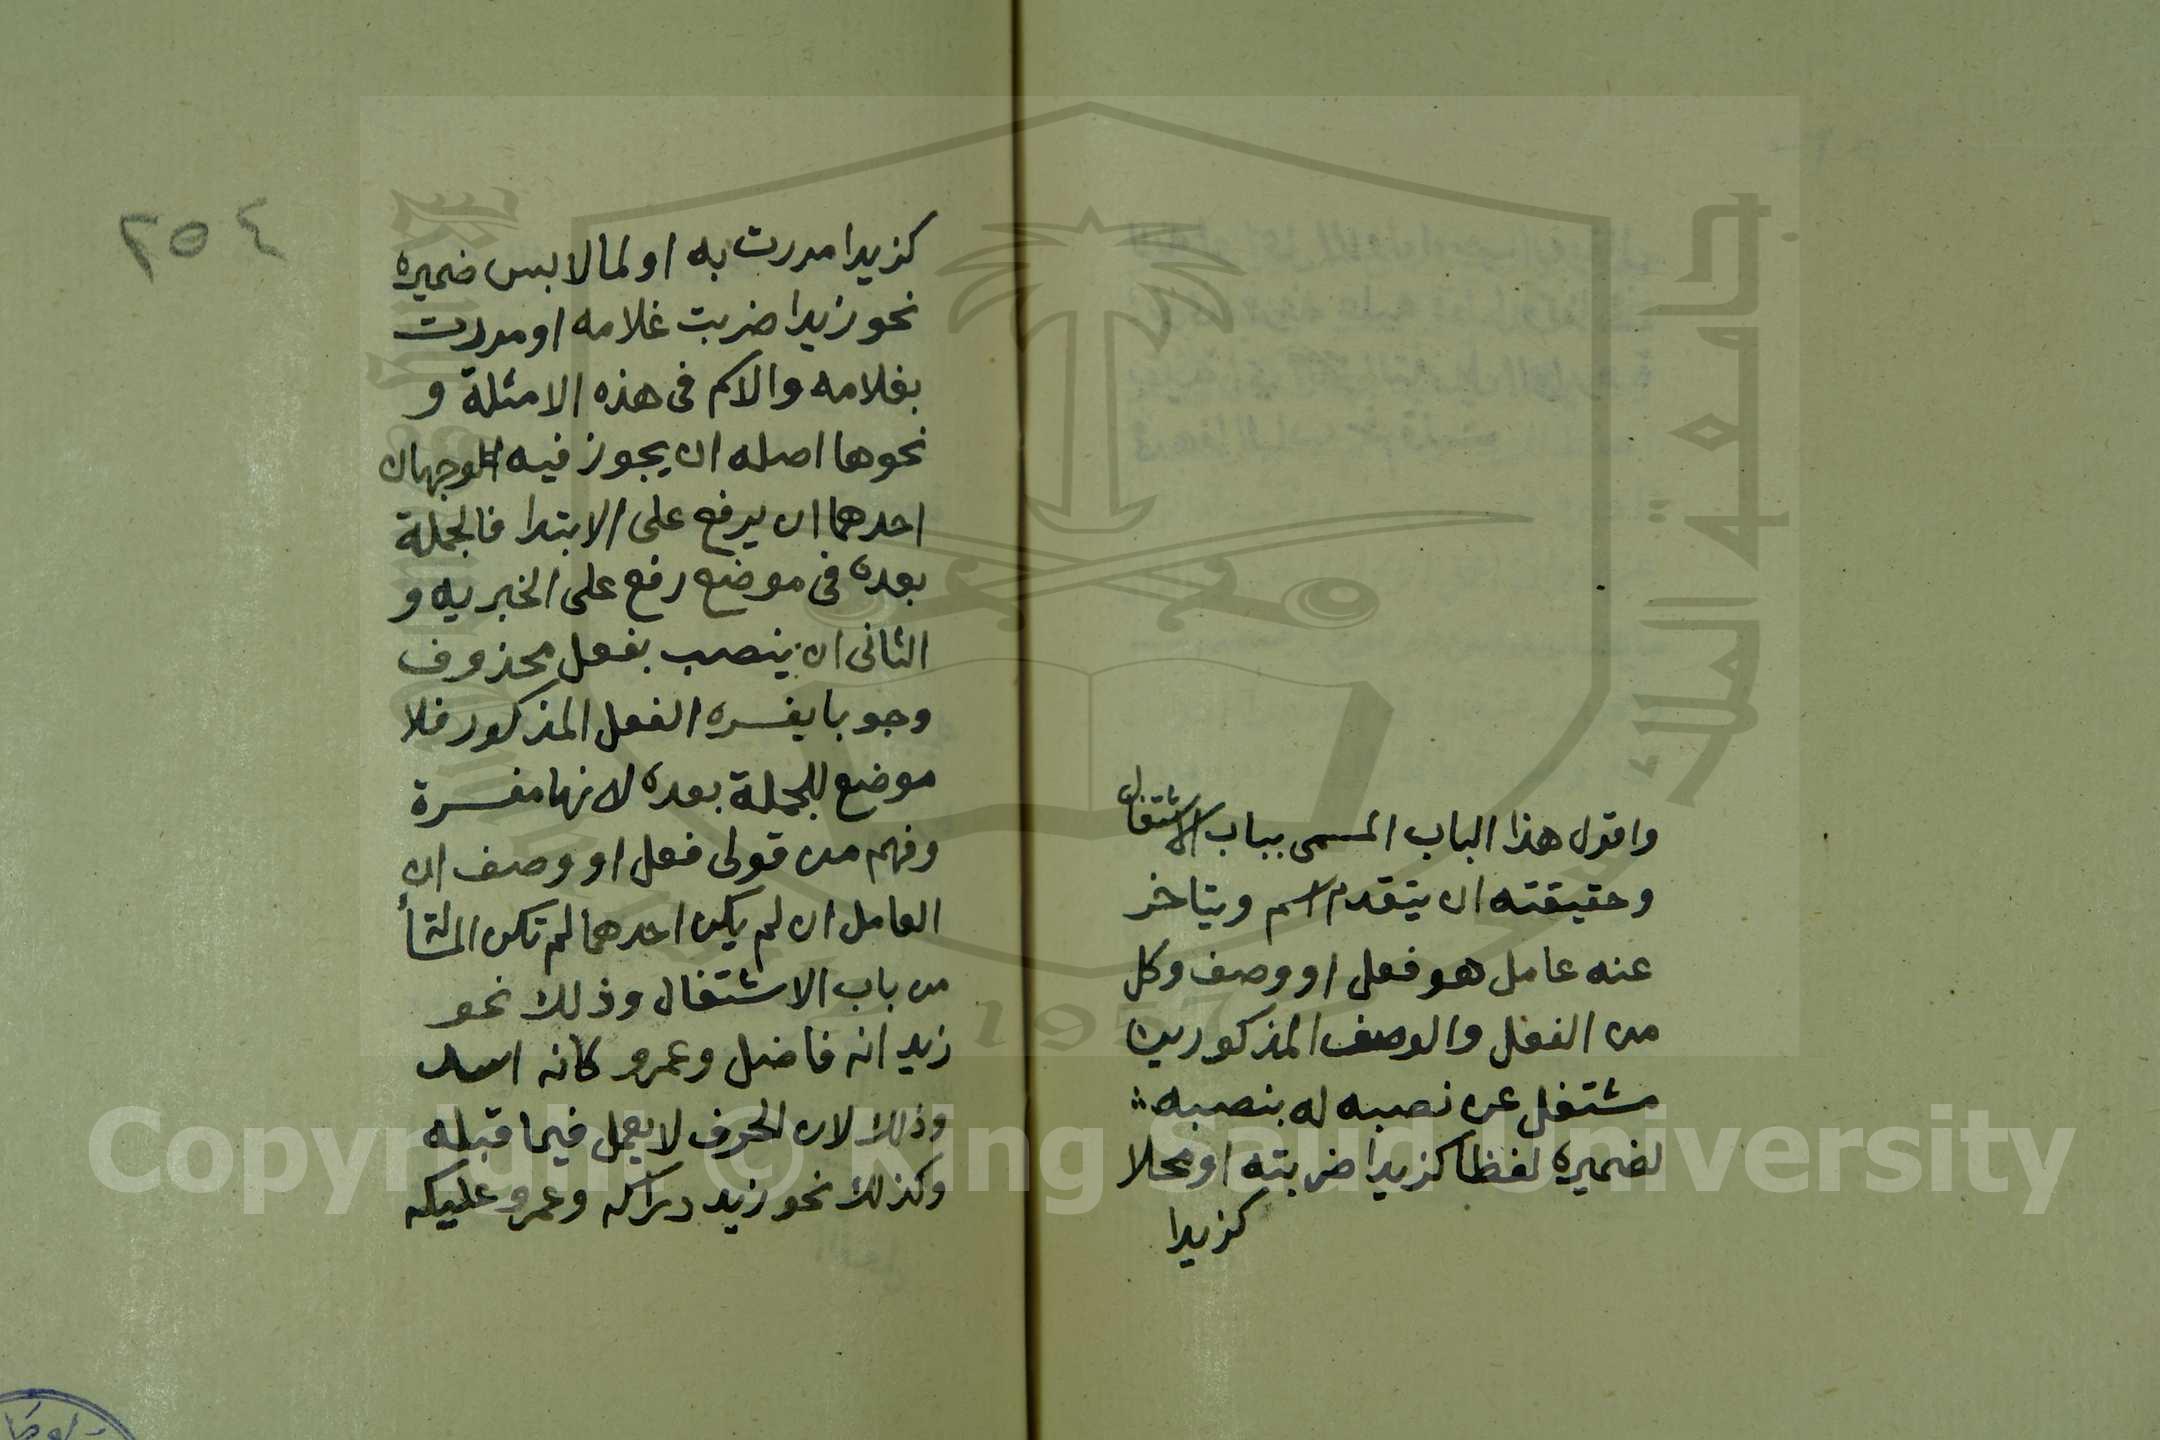 واقول هذا الباب المسمى بباب الاشتغال
وحقيقته ان يتقدم اسم ويتاخر
عنه عامل هو فعل او وصف وكل
من الفعل والوصف المذكورين
مشتغل عن نصبه له بنصبه
لضميره لفظا كزيدا ضربته او محلا
كزيدا
٢٥٤
كزيدا مررت به او لما لابس ضميره
نحو زيدا ضربت غلامه او مررت
بغلامه والاسم فى هذه الامثلة و
نحوها اصله ان يجوز فيه الوجهان
احدهما ان يرفع على الابتدا فالجملة
بعده فى موضع رفع على الخبريه و
الثانى ان ينصب بفعل محذوف
وجوبا يفسره الفعل المذكور فلا
موضع للجملة بعده لانها مفسرة
وفهم من قولى فعل او وصف ان
العامل ان لم يكن احدهما لم تكن المسألة
من باب الاشتغال وذلك نحو
زيد انه فاضل وعمرو كانه اسد
وذلك لان الحرف لا يعمل فيما قبله
وكذلك نحو زيد دراكه وعمرو عليكه
جامعة الملك سعود
King Saud University
1957
Copyright © King Saud University